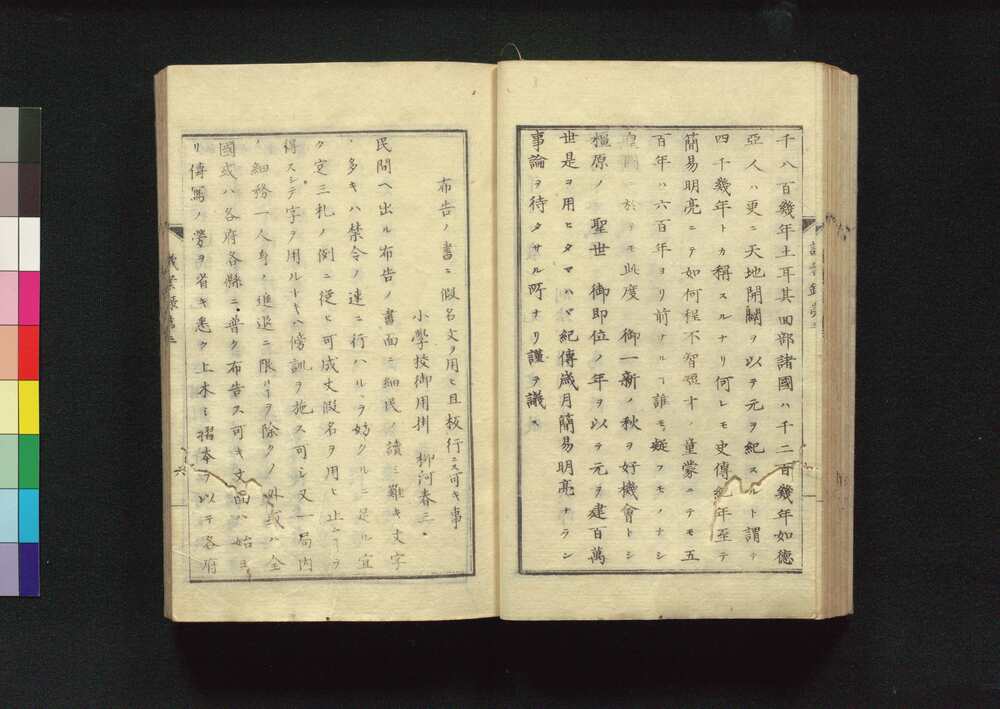 千八百幾年土耳其回部諸國ハ千二百幾年如德
亞人ハ更ニ天地開闢ヲ以テ元ヲ紀スルト謂テ
四千幾年トカ稱スルナリ何レモ史傳紀年至テ
簡易明亮ニテ如何程不智短才ノ童蒙ニテモ五
百年ハ六百年ヨリ前ナルヿ誰モ疑フモノナシ
皇國ニ於テモ此度 御一新ノ秋ヲ好機會トシ
橿原ノ 聖世 御即位ノ年ヲ以テ元ヲ建百萬
世是ヲ用ヒタマハヾ紀傳歳月簡易明亮ナラン
事論ヲ待タサル所ナリ謹テ議ス
布告ノ書ニ假名文ヲ用ヒ且板行ニス可キ事
小學校御用掛 柳河春三
民間ヘ出ル布告ノ書面ニ細民ノ讀ミ難キ文字
ノ多キハ禁令ノ速ニ行ハルヽヲ妨クルニ足ル宜
ク定三札ノ例ニ從ヒ可成丈假名ヲ用ヒ止ヿヲ
得スシテ字ヲ用ルトキハ傍訓ヲ施ス可シ又一局内
ノ細務一人身ノ進退ニ限リヲ除クノ外或ハ全
國或ハ各府各縣ニ普ク布告ス可キ文面ハ始ヨ
リ傳寫ノ勞ヲ省キ悉ク上木シ摺本ヲ以テ各府